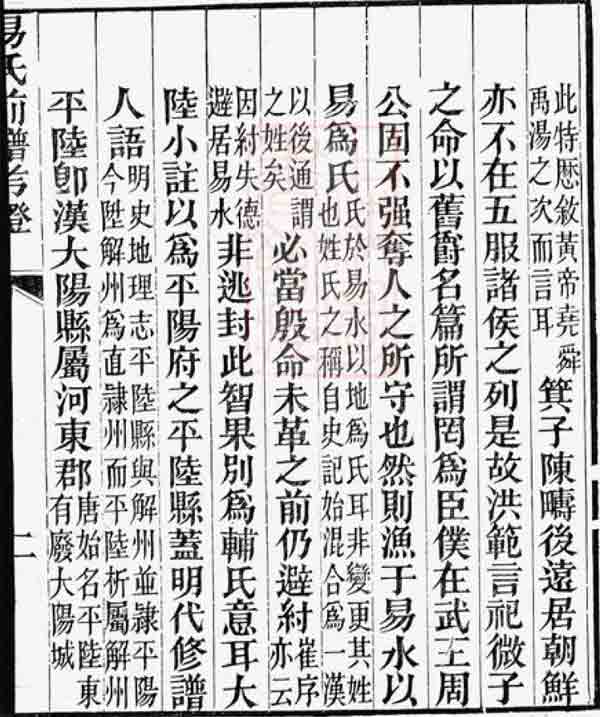 此特厯敘黃帝堯舜
禹湯之次而言耳
箕子陳疇後遠居朝鮮
亦不在五服諸侯之列是故洪範言祀微子
之命以舊爵名篇所謂罔爲臣僕在武王周
公固不强奪人之所守也然則漁于易水以
易爲氏
氏於易水以地爲氏耳非變更其姓
也姓氏之稱自史記始混合爲一漢
以後通謂
之姓矣
必當殷命未革之前仍避紂
崔序
亦云
因紂失德
避居易水
非逃封此智果別爲輔氏意耳大
陸小註以爲平陽府之平陸縣蓋明代修譜
人語
明史地理志平陸縣與解州並隷平陽
今陞解州爲直隷州而平陸析屬解州
平陸卽漢大陽縣屬河東郡
唐始名平陸東
有廢大陽城
易氏前譜考證
二